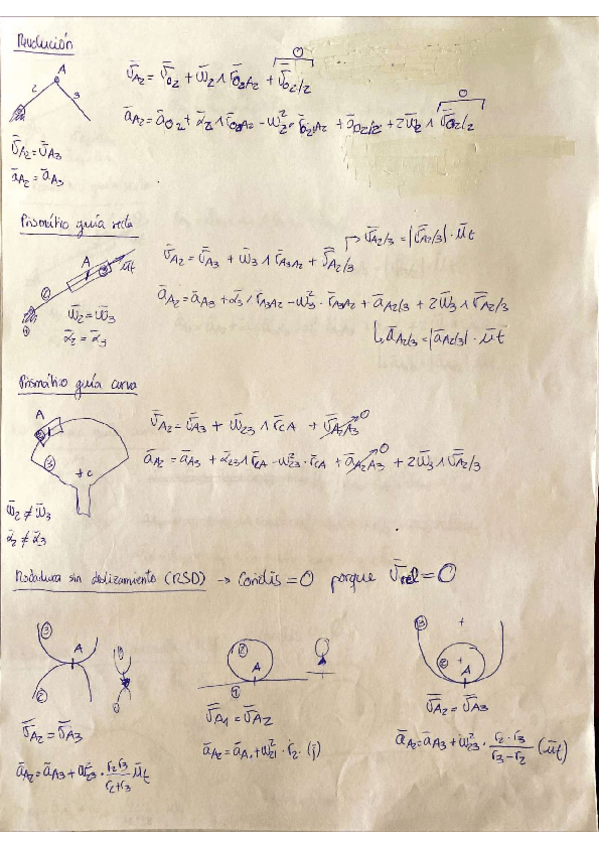 Revolución
A
2
3
v̄A2 = v̄O2 + ω̄2 ∧ r̄O2A2 + v̄O2/2 0
āA2 = āO2 + ᾱ2 ∧ r̄O2A2 - ω²2 · r̄O2A2 + āO2/2 + 2ω̄2 ∧ v̄O2/2 0
v̄A2 = v̄A3
āA2 = āA3
Prismático guía recta
A
ūt
2
3
v̄A2/3 = |v̄A2/3| · ūt
v̄A2 = v̄A3 + ω̄3 ∧ r̄A3A2 + v̄A2/3
āA2 = āA3 + ᾱ3 ∧ r̄A3A2 - ω²3 · r̄A3A2 + āA2/3 + 2ω̄3 ∧ v̄A2/3
āA2/3 = |āA2/3| · ūt
ω̄2 = ω̄3
ᾱ2 = ᾱ3
Prismático guía curva
A
2
3
+C
v̄A2 = v̄A3 + ω̄23 ∧ r̄CA + v̄A2A3 0
āA2 = āA3 + ᾱ23 ∧ r̄CA - ω²23 · r̄CA + āA2A3 0 + 2ω̄3 ∧ v̄A2/3
ω̄2 ≠ ω̄3
ᾱ2 ≠ ᾱ3
Rodadura sin deslizamiento (RSD) → Coriolis = 0 porque v̄rel = 0
3
A
2
v̄A2 = v̄A3
āA2 = āA3 + ω²23 · r2·r3 / r2+r3 ūt
2
A
1
v̄A1 = v̄A2
āA2 = āA1 + ω²21 · r2 · (j̄)
3
2
A
v̄A2 = v̄A3
āA2 = āA3 + ω²23 · r2·r3 / r3-r2 (ūt)